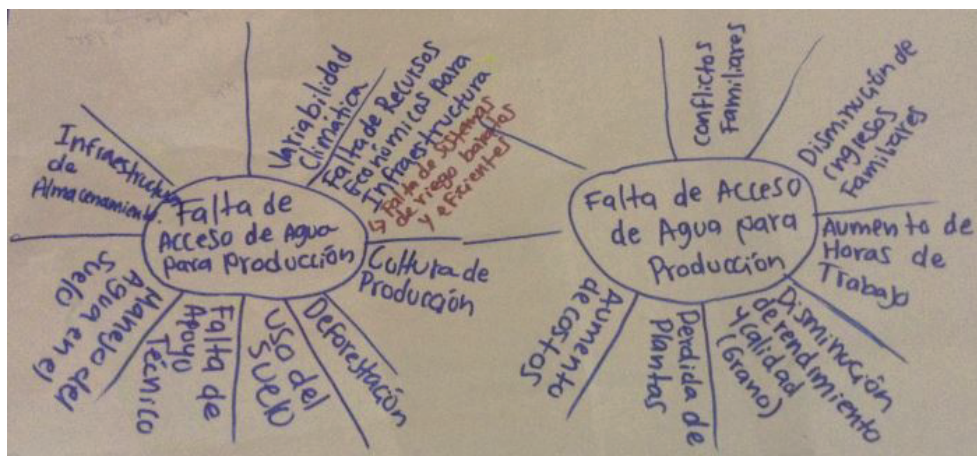 Falta de
Acceso de Agua
para Producción
Infraestructura
de
Almacenamiento.
Variabilidad
Climática
Falta de Recursos
Económicos para
Infraestructura
↳ Falta de sistemas
de riego baratos
y eficientes
Cultura de
Producción
Deforestación
Uso del
Suelo
Falta de
Apoyo
Técnico
Manejo del
Agua en el
Suelo
Falta de Acceso
de Agua para
Producción
Conflictos
Familiares
Disminución de
Ingresos
Familiares
Aumento de
Horas de
Trabajo
Disminución
de rendimiento
y calidad
(Grano)
Perdida de
Plantas
Aumento
de costos